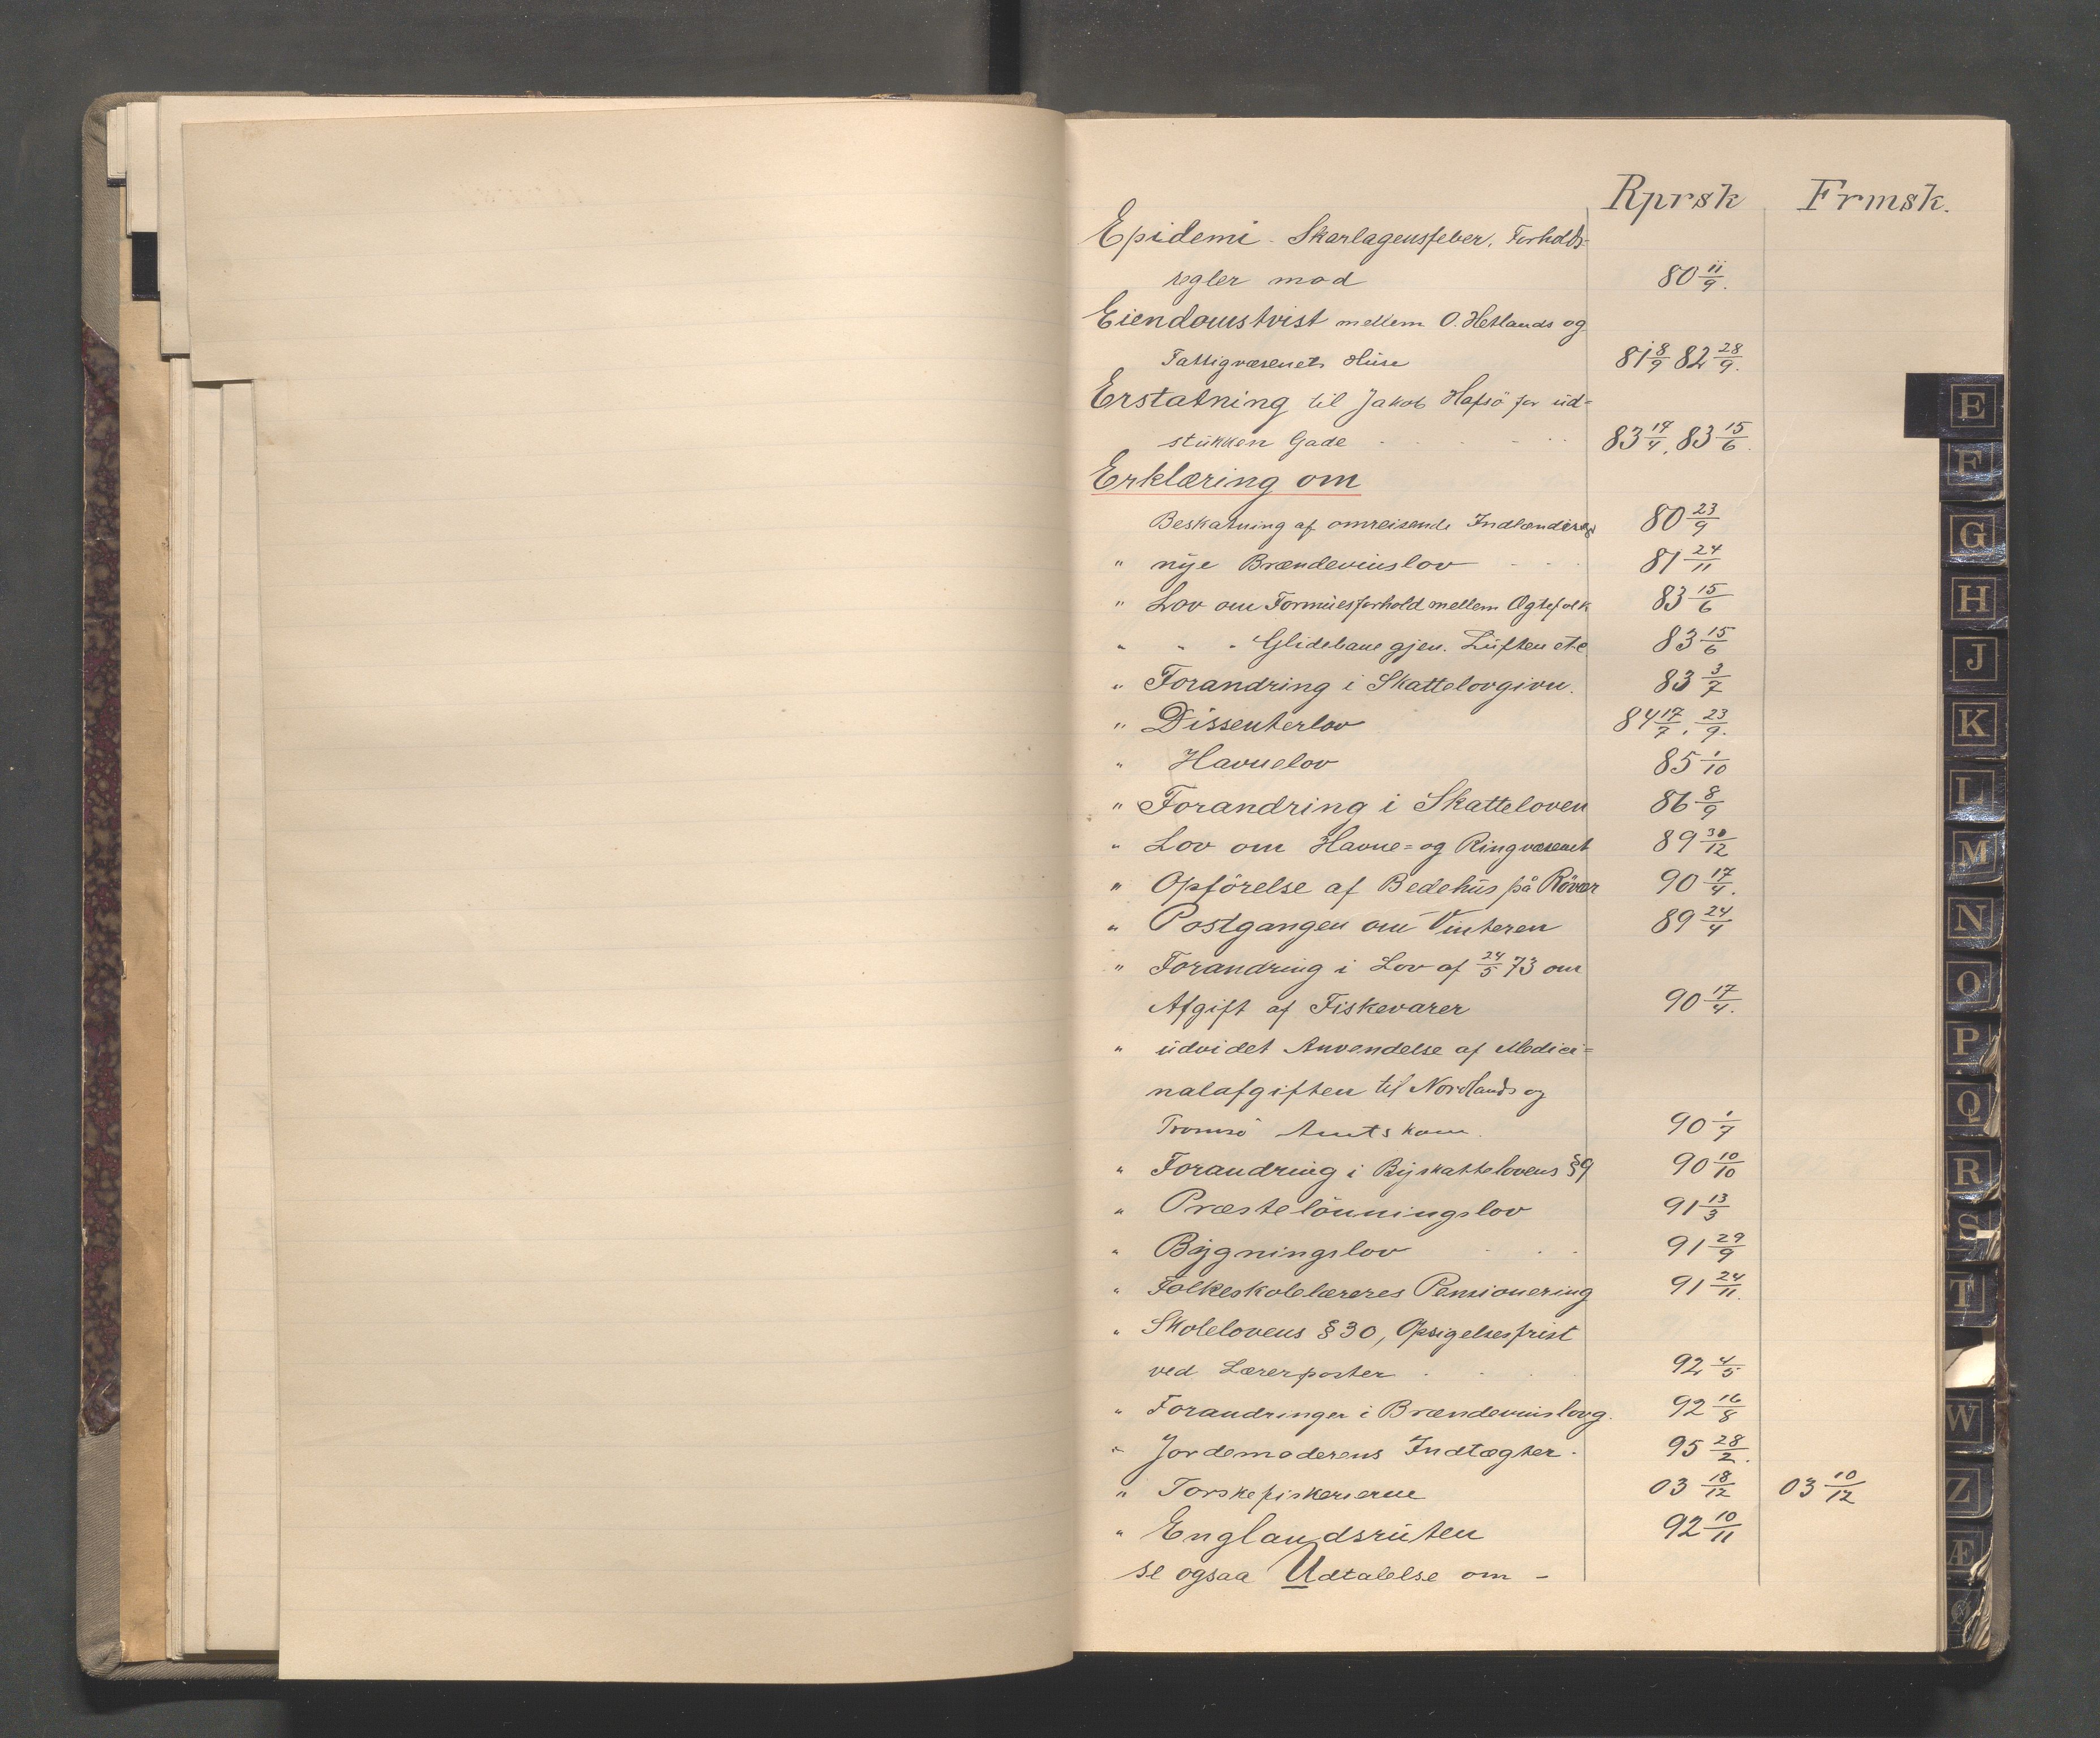 Rprsk Frmsk.
Epidemi - Skarlagensfeber, Forholds-
regler mod 80 11/9.
Eiendomstvist mellem O. Hetlands og
Fattigvæsenets Huse 81 8/9 82 28/9.
Erstatning til Jakob Hafsö for ud-
stukken Gade 83 19/4, 83 15/6.
Erklæring om
Beskatning af omreisende Indlændinge 80 23/9
" nye Brændevinslov 81 24/11
" Lov om Formuesforhold mellem Ægtefolk 83 15/6
" " " Glidebane gjen. Luften etc 83 15/6
" Forandring i Skattelovgivn. 83 3/7
" Dissenterlov 84 17/7, 23/9.
" Havnelov 85 1/10
" Forandring i Skatteloven 86 8/9
" Lov om Havne= og Ringvæsenet 89 30/12
" Opförelse af Bedehus på Rövær 90 17/4.
" Postgangen om Vinteren 89 24/4
" Forandring i Lov af 24/5 73 om
Afgift af Fiskevarer 90 17/4.
" udvidet Anvendelse af Medici=
nalafgiften til Nordlands og
Tromsö Amtskom. 90 1/7
" Forandring i Byskattelovens §9 90 10/10
" Præstelönningslov 91 13/3
" Bygningslov 91 29/9
" Folkeskolelæreres Pensionering 91 24/11.
" Skolelovens § 30, Opsigelsesfrist
ved Lærerposter 92 4/5
" Forandringer i Brændevinslovg. 92 16/8
" Jordemoderens Indtægter. 95 28/2.
" Torskefiskerierne 03 18/12 03 10/12
" Englandsruten 92 10/11
se ogsaa Udtalelse om -
E
F
G
H
J
K
L
M
N
O
P
Q
R
S
T
W
Z
Æ
Ø